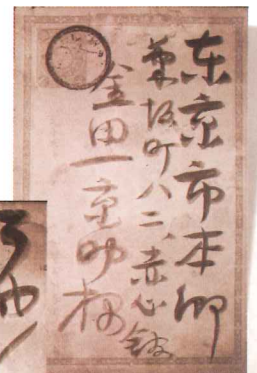 东京市本郷
菊坂町八二、赤心館
金田一京助様